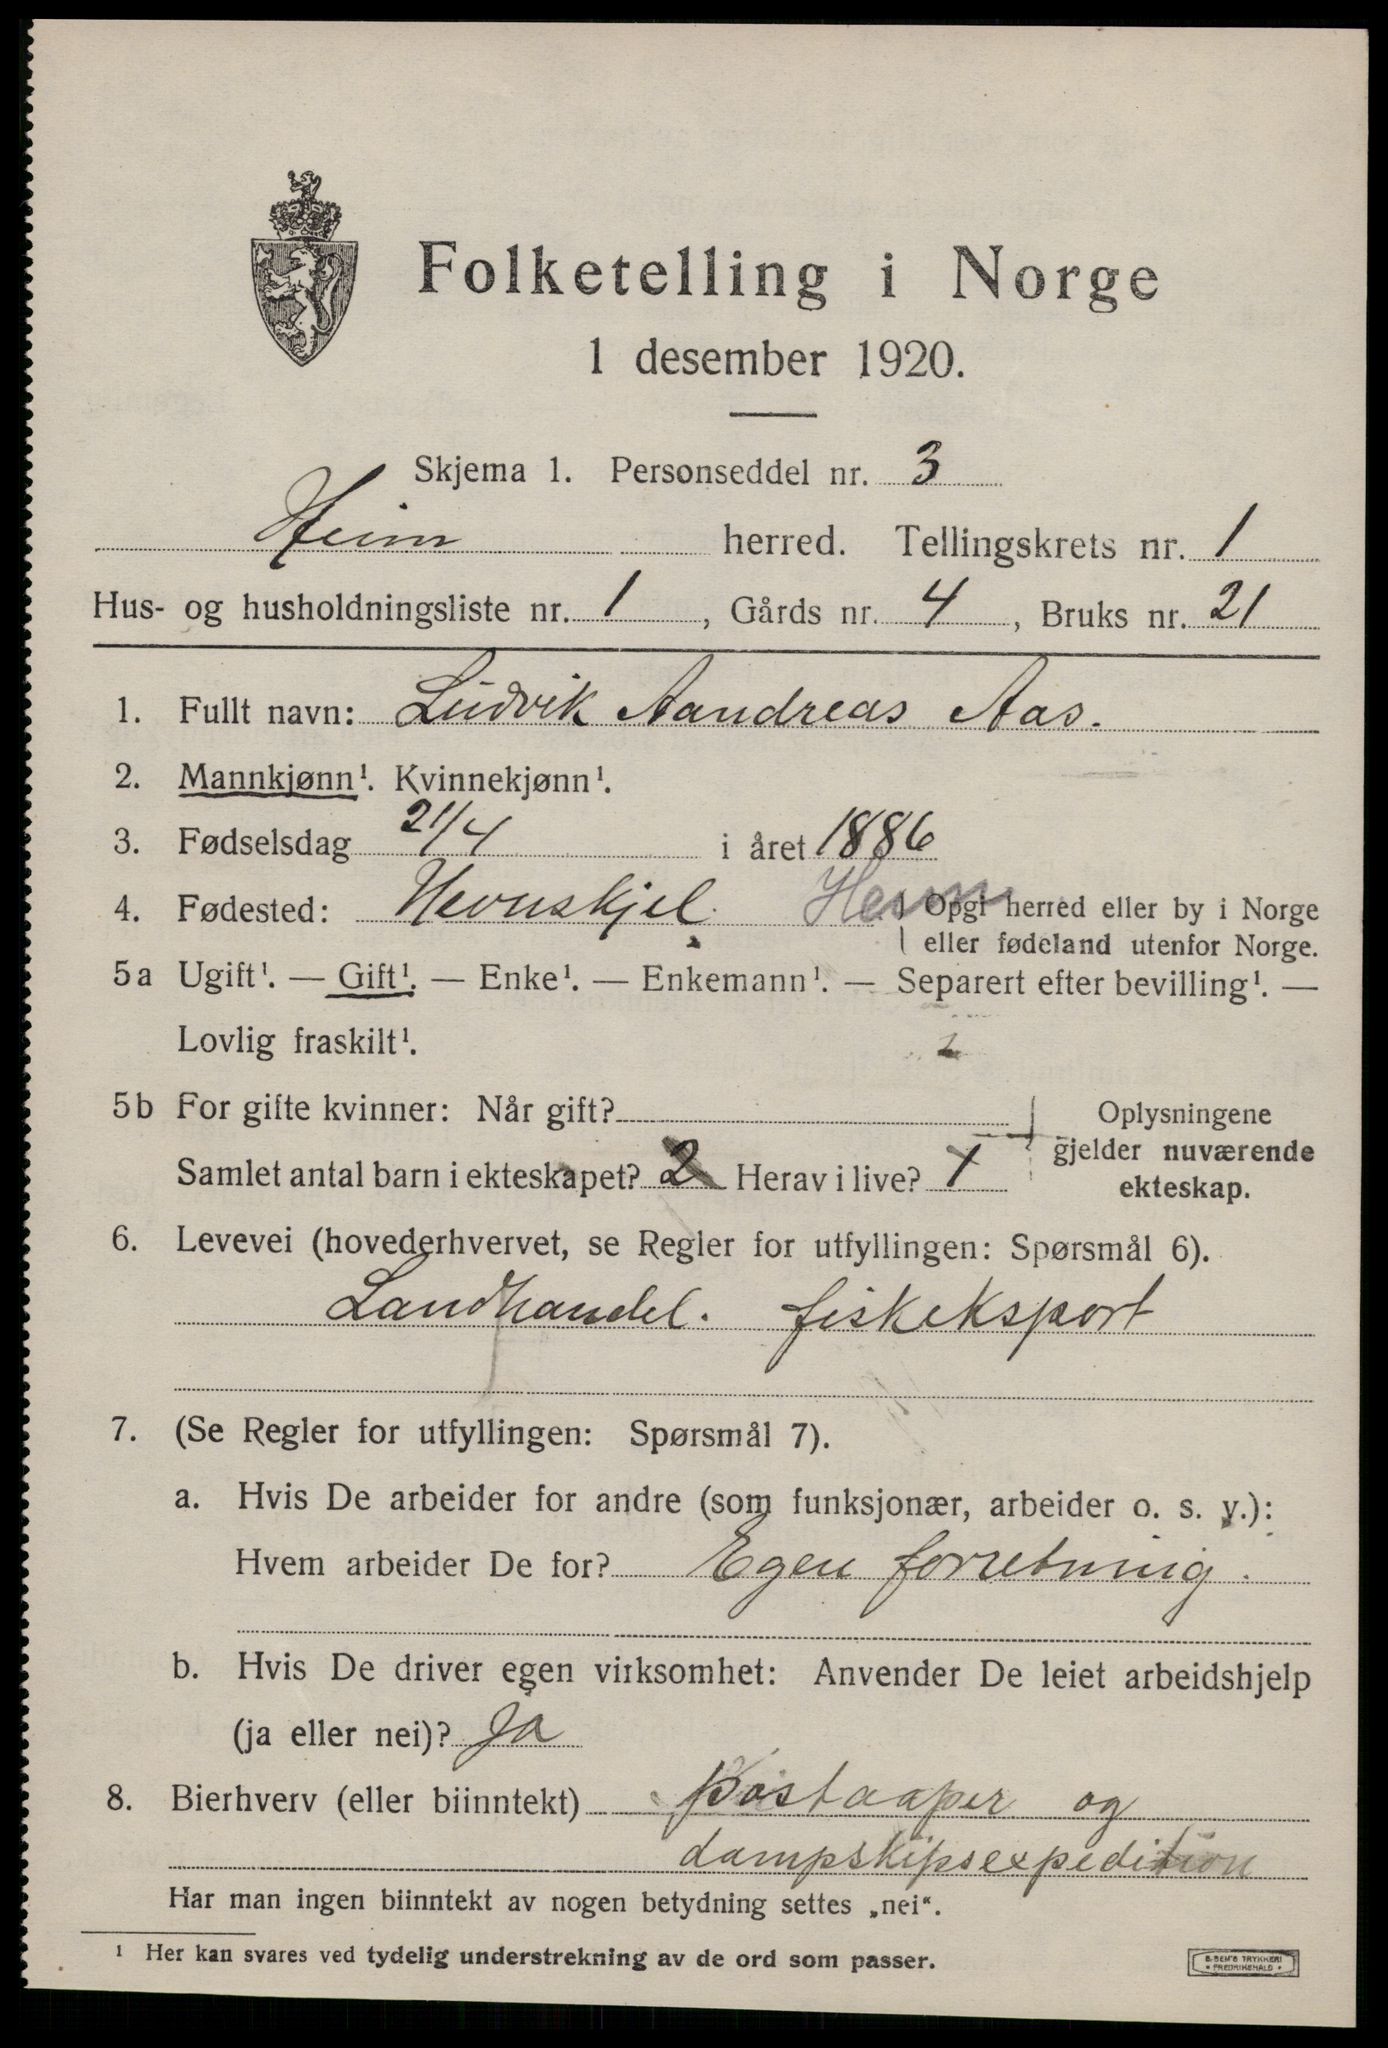 Folketelling i Norge
1 desember 1920.
Skjema 1. Personseddel nr. 3
Heim herred. Tellingskrets nr. 1
Hus- og husholdningsliste nr. 1, Gårds nr. 4, Bruks nr. 21
1. Fullt navn: Ludvik Aandreas Aas.
2. Mannkjønn¹. Kvinnekjønn¹.
3. Fødselsdag 21/4 i året 1886
4. Fødested: Hevnskjel Opgi herred eller by i Norge
eller fødeland utenfor Norge.
5a Ugift¹. — Gift¹. — Enke¹. — Enkemann¹. — Separert efter bevilling¹. —
Lovlig fraskilt¹.
5b For gifte kvinner: Når gift?
Samlet antal barn i ekteskapet? 2 Herav i live? 1
Oplysningene
gjelder nuværende
ekteskap.
6. Levevei (hovederhvervet, se Regler for utfyllingen: Spørsmål 6).
Landhandel. fiskeksport
7. (Se Regler for utfyllingen: Spørsmål 7).
a. Hvis De arbeider for andre (som funksjonær, arbeider o. s. v.):
Hvem arbeider De for? Egen forretning.
b. Hvis De driver egen virksomhet: Anvender De leiet arbeidshjelp
(ja eller nei)? Ja
8. Bierhverv (eller biinntekt) postaaper og
dampskipsexpedition
Har man ingen biinntekt av nogen betydning settes „nei“.
¹ Her kan svares ved tydelig understrekning av de ord som passer.